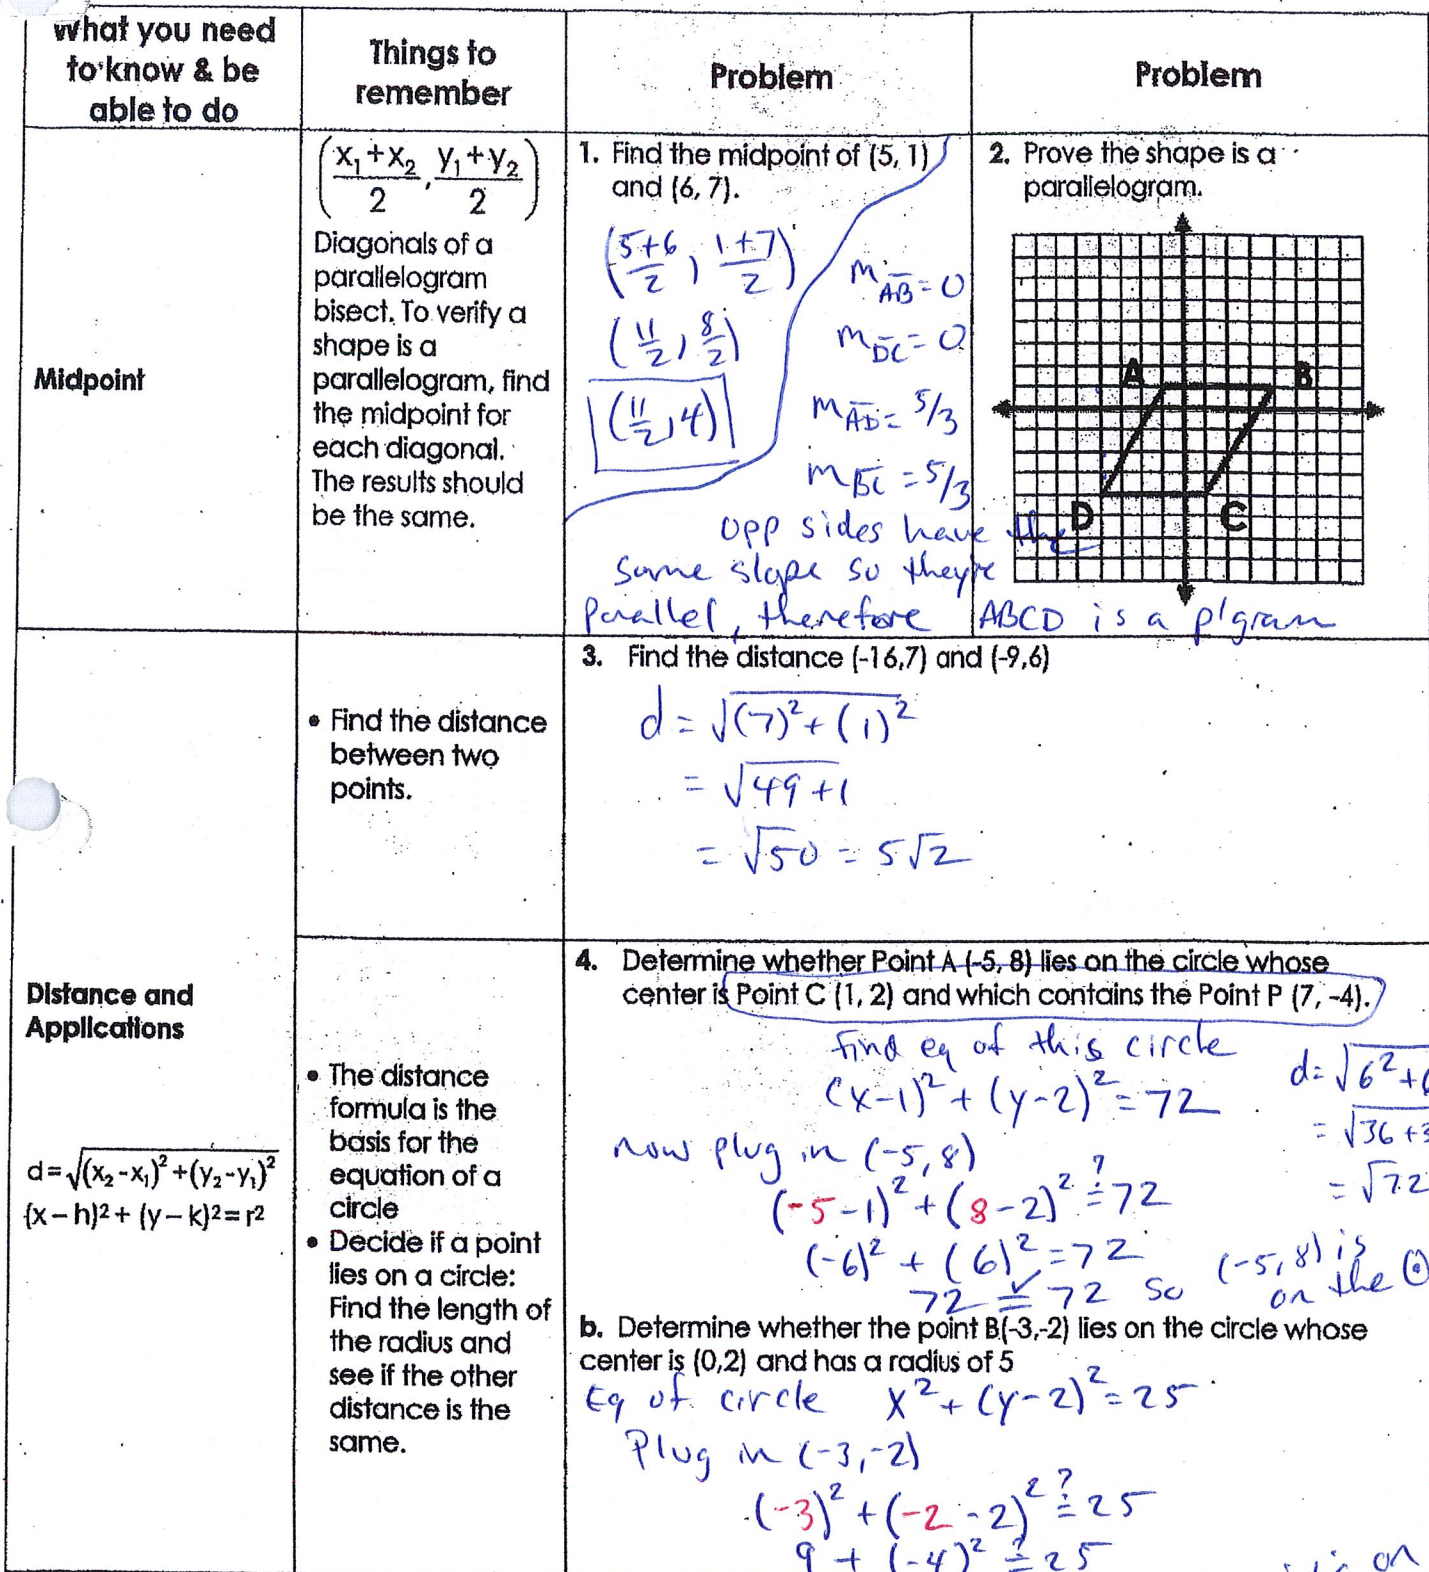 What you need
to know & be
able to do
Things to
remember
Problem
Problem
Midpoint
(x₁+x₂/2, y₁+y₂/2)
Diagonals of a
parallelogram
bisect. To verify a
shape is a
parallelogram, find
the midpoint for
each diagonal.
The results should
be the same.
1. Find the midpoint of (5, 1)
and (6, 7).
(5+6/2, 1+7/2)
(11/2, 8/2)
(11/2, 4)
2. Prove the shape is a
parallelogram.
m AB = 0
m DC = 0
m AD = 5/3
m BC = 5/3
A
B
D
C
opp sides have the
same slope so they're
parallel, therefore ABCD is a p'gram
Distance and
Applications
d=√(x₂-x₁)²+(y₂-y₁)²
(x – h)2+ (y – k)2=r2
• Find the distance
between two
points.
3. Find the distance (-16,7) and (-9,6)
d = √(7)²+(1)²
= √49+1
= √50 = 5√2
• The distance
formula is the
basis for the
equation of a
circle
• Decide if a point
lies on a circle:
Find the length of
the radius and
see if the other
distance is the
same.
4. Determine whether Point A (-5, 8) lies on the circle whose
center is Point C (1, 2) and which contains the Point P (7, -4).
find eq of this circle
(x-1)²+(y-2)²=72
d=√6²+
= √36+3
= √72
now plug in (-5,8)
(-5-1)²+(8-2)²≟72
(-6)²+(6)²=72
72 = 72 so (-5,8) is
on the ⊙
b. Determine whether the point B(-3,-2) lies on the circle whose
center is (0,2) and has a radius of 5
Eq of circle x²+(y-2)²=25
Plug in (-3,-2)
(-3)²+(-2-2)²≟25
9+(-4)²≟25
on